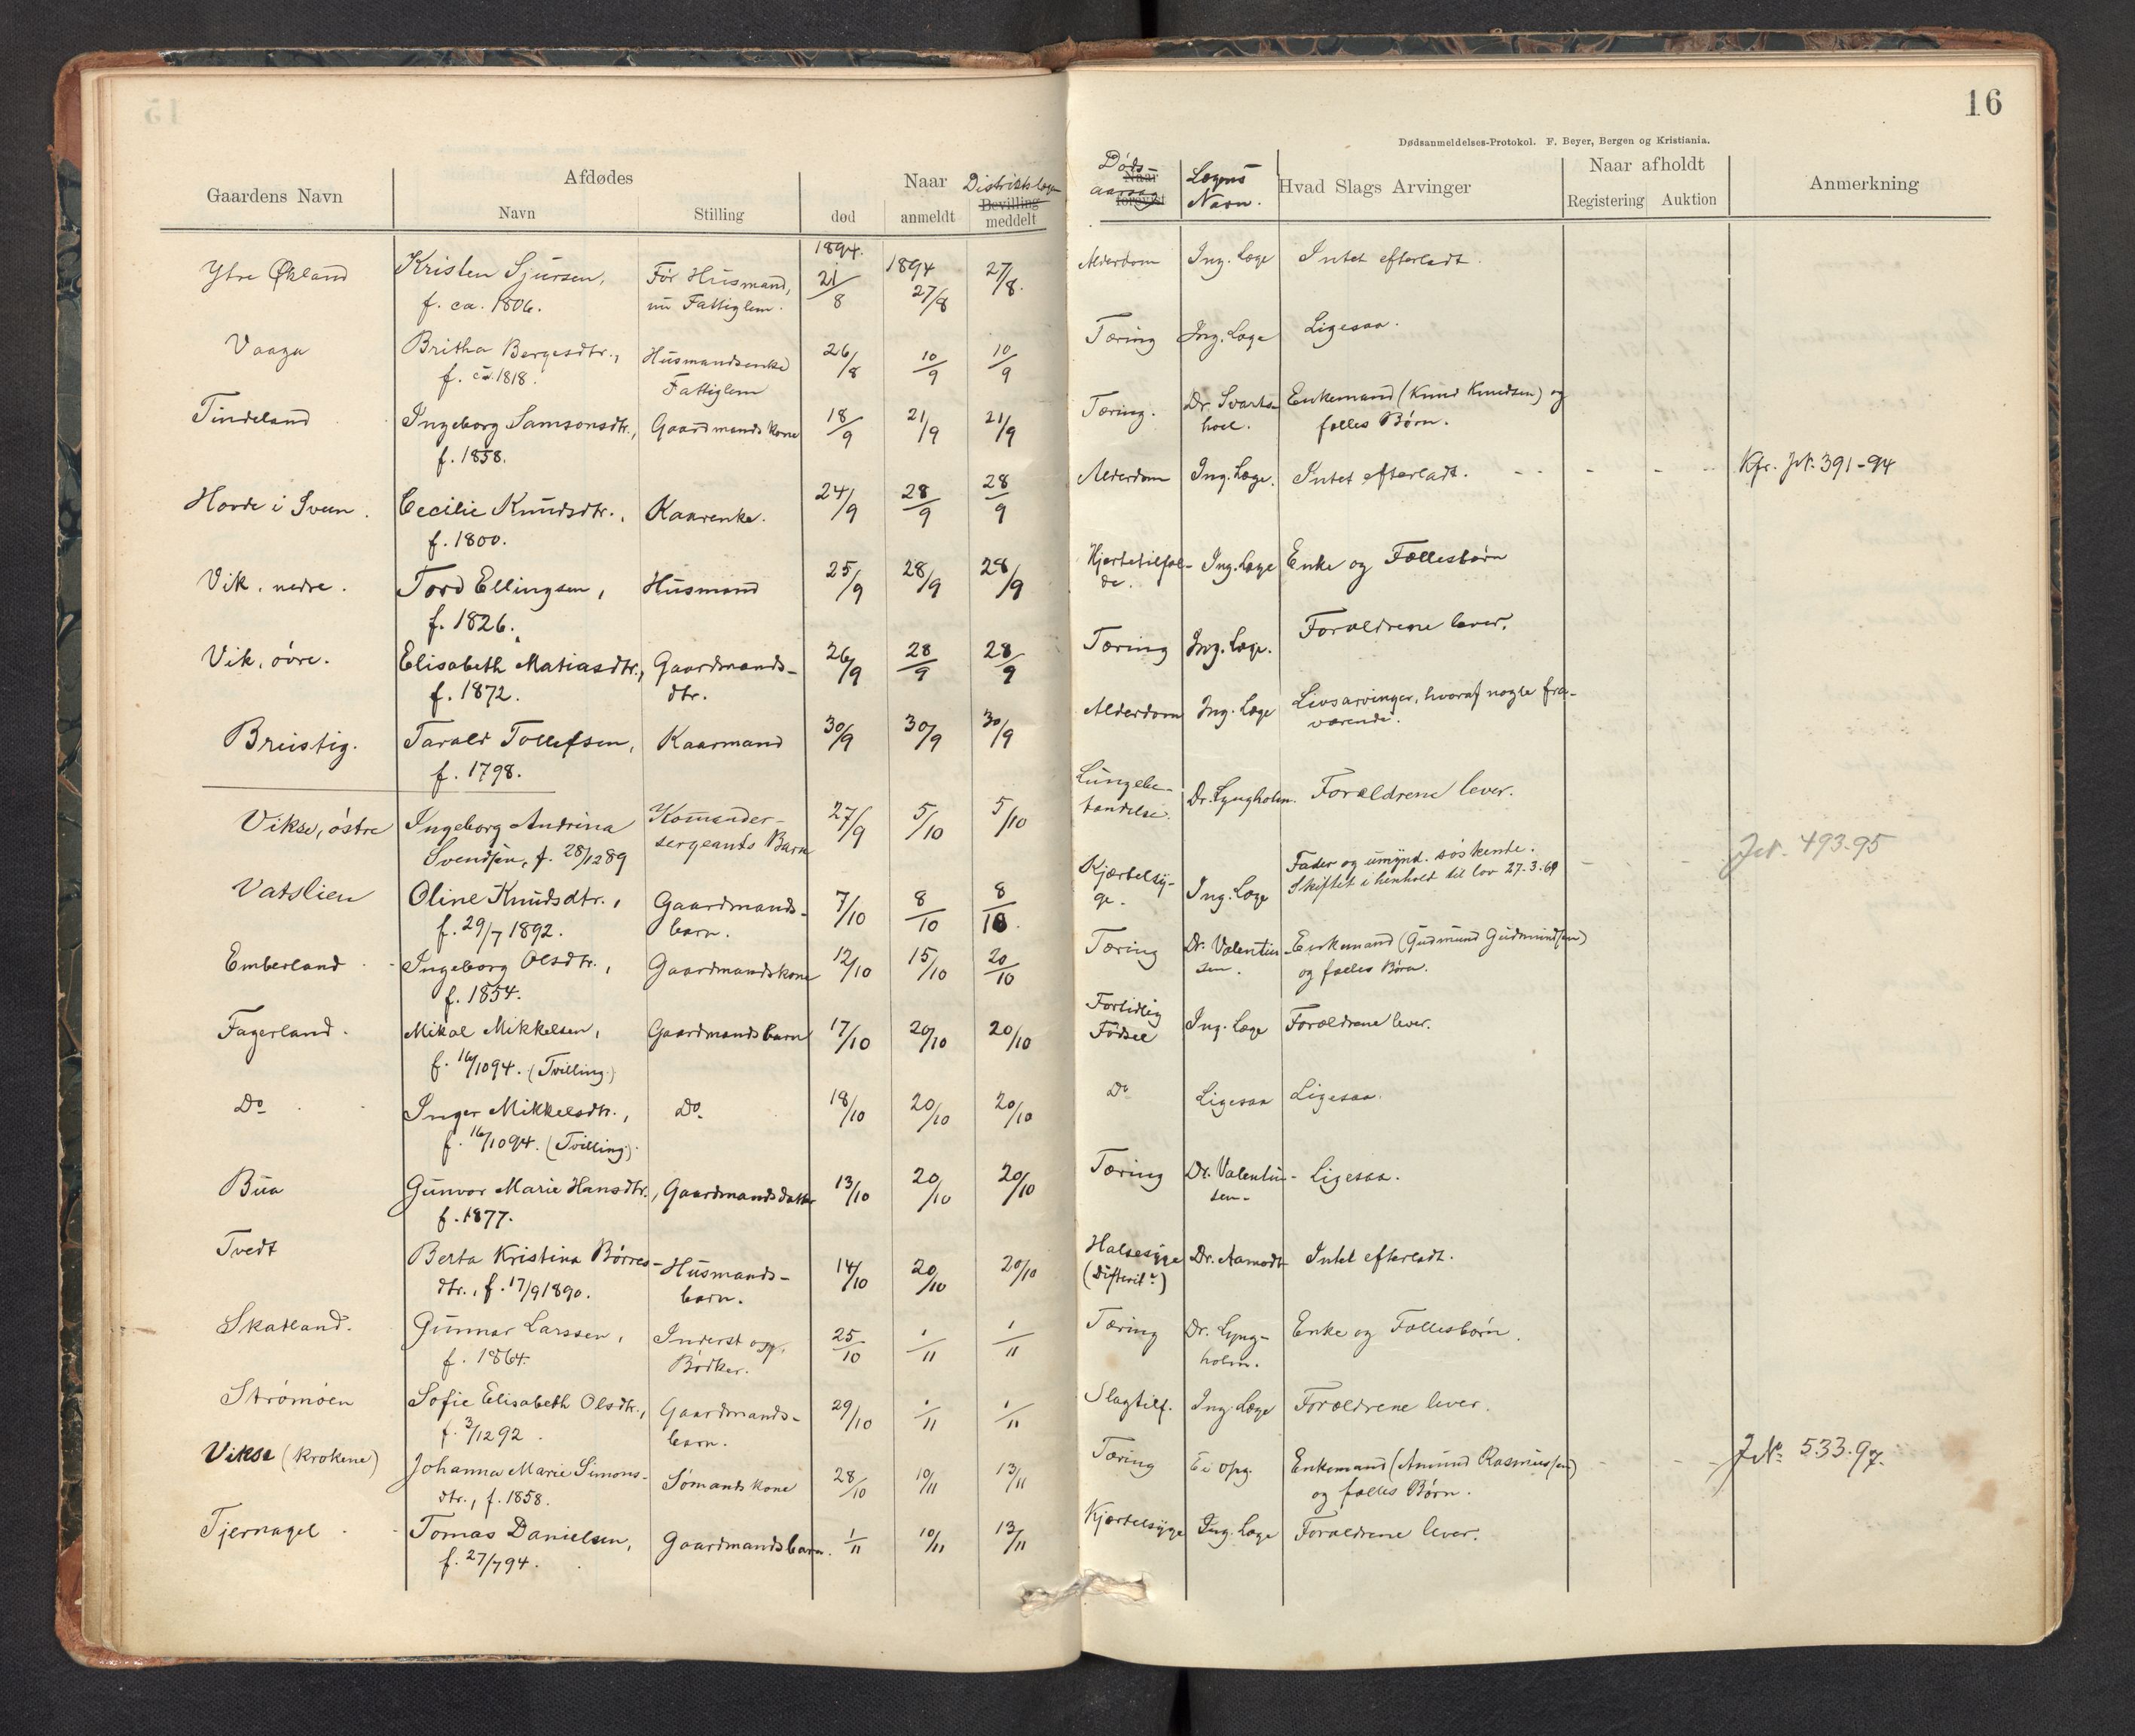 16
Dødsanmeldelses-Protokol. F. Beyer, Bergen og Kristiania.
Gaardens Navn
Afdødes
Navn
Stilling
Naar
død
anmeldt
Distriktslægen
Bevilling
meddelt
Døds-
Naar
aarsag
Lægens
Navn.
Hvad Slags Arvinger
Naar afholdt
Registering
Auktion
Anmerkning
1894. 1894
Ytre Økland Kristen Sjursen, Før Husmand, 21/8 27/8 27/8. Alderdom Ing. Læge Intet efterladt.
f. ca. 1806. nu Fattiglem.
Vaaga Britha Børgesdtr., Husmandsenke 26/8 10/9 10/9 Tæring Ing. Læge Ligesaa.
f. ca. 1818. Fattiglem
Tindeland Ingeborg Samsonsdtr., Gaardmands kone 18/9 21/9 21/9 Tæring. Dr. Svarts- Enkemand (Knud Knudsen) og
f. 1858. hoel. fælles Børn.
Hovde i Sveen. Cecilie Knudsdtr., Kaarenke. 24/9 28/9 28/9 Alderdom Ing. Læge. Intet efterladt. - - - - - Kfr. JN. 391-94
f. 1800.
Vik, nedre. Tord Ellingsen, Husmand 25/9 28/9 28/9 Hjertetilfæl- Ing. Læge Enke og Fællesbørn
f. 1826. de.
Vik, øvre. Elisabeth Matiasdtr., Gaardmands- 26/9 28/9 28/9 Tæring Ing. Læge. Forældrene lever.
f. 1872. dtr.
Brustig. Tarald Tollefsen, Kaarmand 30/9 30/9 30/9 Alderdom Ing. Læge Livsarvinger, hvoraf nogle fra-
f. 1798. værende.
Vikse, østre Ingeborg Andrina Kommander- 27/9 5/10 5/10 Lungebe- Dr. Lyngholm. Forældrene lever.
Svendsen, f. 28/12 89 sergeants Barn tændelse.
Vatslien Oline Knudsdtr., Gaardmands- 7/10 8/10 8/10. Kjærtelsy- Ing. Læge Fader og umynd. søskende. - - - JN. 493-95
f. 29/7 1892. barn. ge. Skiftet i henhold til lov 27.3.69
Emberland Ingeborg Olsdtr., Gaardmandskone 12/10 15/10 20/10 Tæring Dr. Valentin- Enkemand (Gudmund Gudmundsen)
f. 1854. sen. og fælles Børn.
Fagerland. Mikal Mikkelsen, Gaardmandsbarn 17/10 20/10 20/10 Fortidlig Ing. Læge Forældrene lever.
f. 16/10 94. (Tvilling) Fødsel
Do Inger Mikkelsdtr., Do. 18/10 20/10 20/10 Do Ligesaa Ligesaa.
f. 16/10 94. (Tvilling).
Bua Gunvor Marie Hansdtr., Gaardmandsdatter 13/10 20/10 20/10 Tæring Dr. Valentin- Ligesaa.
f. 1877. sen.
Tvedt Berta Kristina Børres- Husmands- 14/10 20/10 20/10 Halsesyge Dr. Aamodt Intet efterladt.
dtr., f. 17/9 1890. barn. (Difterit?)
Skatland. Gunnar Larssen, Inderst og 25/10 1/11 1/11 Tæring Dr. Lyng- Enke og Fællesbørn.
f. 1864. Bødker. holm.
Strømøen Sofie Elisabeth Olsdtr., Gaardmands- 29/10 1/11 1/11 Slagtilf. Ing. Læge Forældrene lever.
f. 3/12 92. barn.
Vikse (Krokene) Johanna Marie Simons- Sømands kone 28/10 10/11 13/11 Tæring Ei opg. Enkemand (Amund Rasmussen) - - - JNo. 533.97.
dtr., f. 1858. og fælles Børn.
Tjernagel Tomas Danielsen, Gaardmandsbarn. 1/11 10/11 13/11 Kjertelsyge Ing. Læge Forældrene lever.
f. 27/7 94.